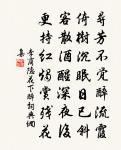 尋芳不覺醉流霞
倚樹沉眠日已斜
客散酒醒深夜後
更持紅燭賞殘花
李商隱花下醉詞典網
集